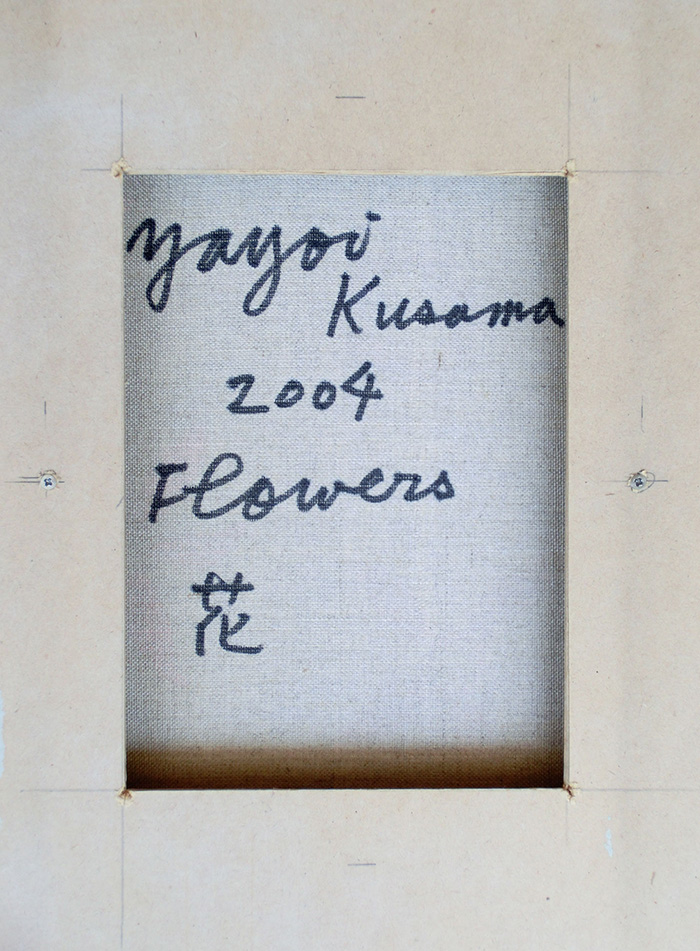 yayoi
Kusama
2004
Flowers
花